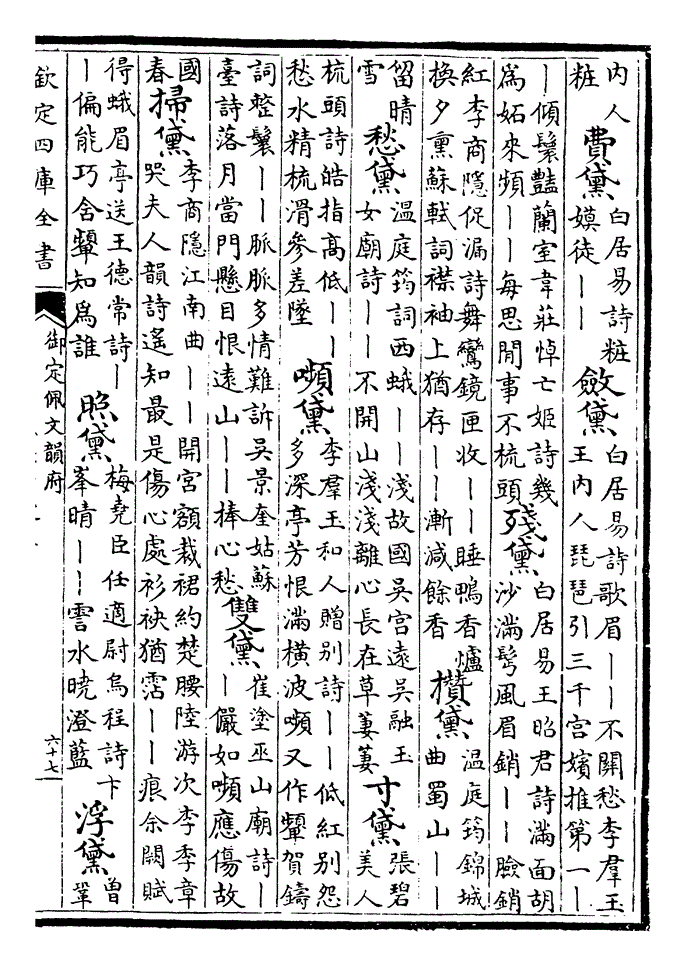 内人粧費黛白居易詩粧嫫徒丨丨斂黛白居易詩歌眉丨丨不關愁李羣玉王内人琵琶引三千宫嬪推第一丨
丨傾鬟豔蘭室韋莊悼亡姬詩幾為妬來頻丨丨每思閒事不梳頭殘黛白居易王昭君詩滿面胡沙滿鬂風眉銷丨丨臉銷
紅李商隱促漏詩舞鸞鏡匣收丨丨睡鴨香爐換夕熏蘇軾詞襟袖上猶存丨丨漸減餘香攢黛温庭筠錦城曲蜀山丨丨
留晴雪愁黛温庭筠詞西蛾丨丨淺故國吳宫遠吳融玉女廟詩丨丨不開山淺淺離心長在草萋萋寸黛張碧美人
梳頭詩皓指髙低丨丨愁水精梳滑參差墜嚬黛李羣玉和人贈别詩丨丨低紅别怨多深亭芳恨滿横波嚬又作顰賀鑄
詞整鬟丨丨脈脈多情難訴吳景奎姑蘇臺詩落月當門懸目恨遠山丨丨捧心愁雙黛崔塗巫山廟詩丨丨儼如嚬應傷故
國春掃黛李商隱江南曲丨丨開宫額裁裙約楚腰陸游次李季章哭夫人韻詩遥知最是傷心處衫袂猶霑丨丨痕余闕賦
得蛾眉亭送王德常詩丨丨偏能巧舍顰知為誰照黛梅堯臣任適尉烏程詩卞峯晴丨丨霅水曉澄藍浮黛曾鞏
欽定四庫全書
御定佩文韻府
六十七